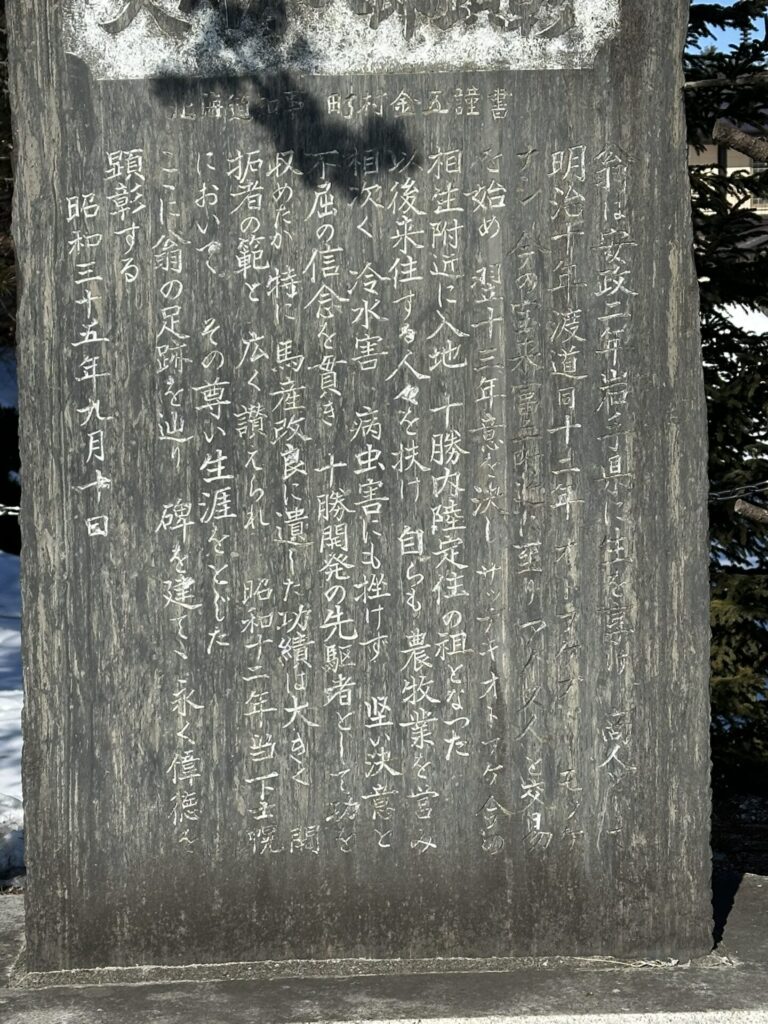 北海道知事 町村金五謹書
翁は安政二年岩手県に生を享け 商人として
明治十年渡道同十二年 オトフケプト モッケ
ナシ 今の 附近に至り アイヌ人と交易
を始め 翌十三年意を決し サッテキオトフケ 今の
相生附近に入地 十勝内陸定住の祖となった
以後来住する人々を扶け 自らも 農牧業を営み
相次ぐ 冷水害 病虫害にも挫けず 堅い決意と
不屈の信念を貫き 十勝開発の先駆者として功を
収めたが 特に 馬産改良に遺した功績は大きく 開
拓者の範と 広く讃えられ 昭和十二年当下士幌
において その尊い生涯をとじた
ここに翁の足跡を辿り 碑を建てて 永く偉徳を
顕彰する
昭和三十五年九月十日